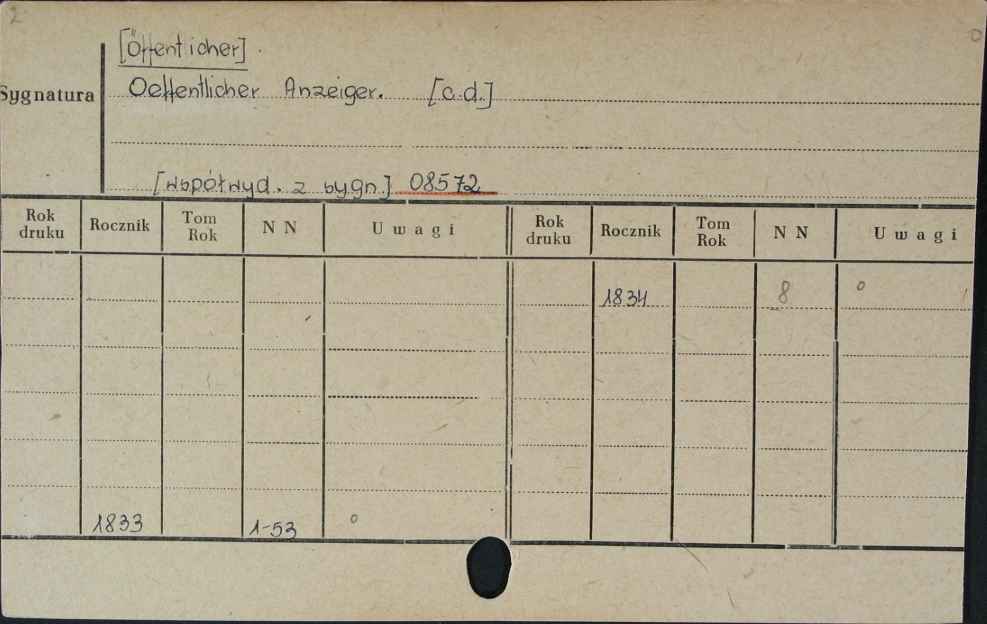 2
[Öffentlicher]
Sygnatura
Oeffentlicher Anzeiger. [c.d.]
[współwyd. z sygn.] 08572
Rok druku Rocznik Tom Rok N N Uwagi Rok druku Rocznik Tom Rok N N Uwagi
1834 8 o
1833 1-53 o